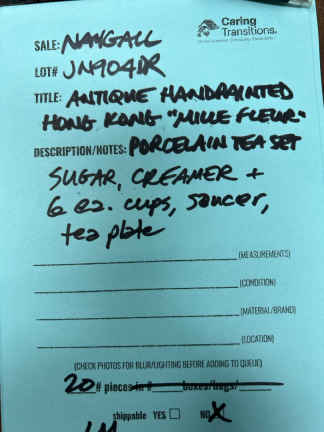 Caring
Transitions.
SALE: NAYGALL
LOT# JN904DR
TITLE: ANTIQUE HANDPAINTED
HONG KONG "MILLE FLEUR"
DESCRIPTION/NOTES: PORCELAIN TEA SET
SUGAR, CREAMER +
6 ea. cups, saucer,
tea plate
(MEASUREMENTS)
(CONDITION)
(MATERIAL/BRAND)
(LOCATION)
(CHECK PHOTOS FOR BLUR/LIGHTING BEFORE ADDING TO QUEUE)
20 # pieces in # boxes/bags/
shippable YES ☐ NO X